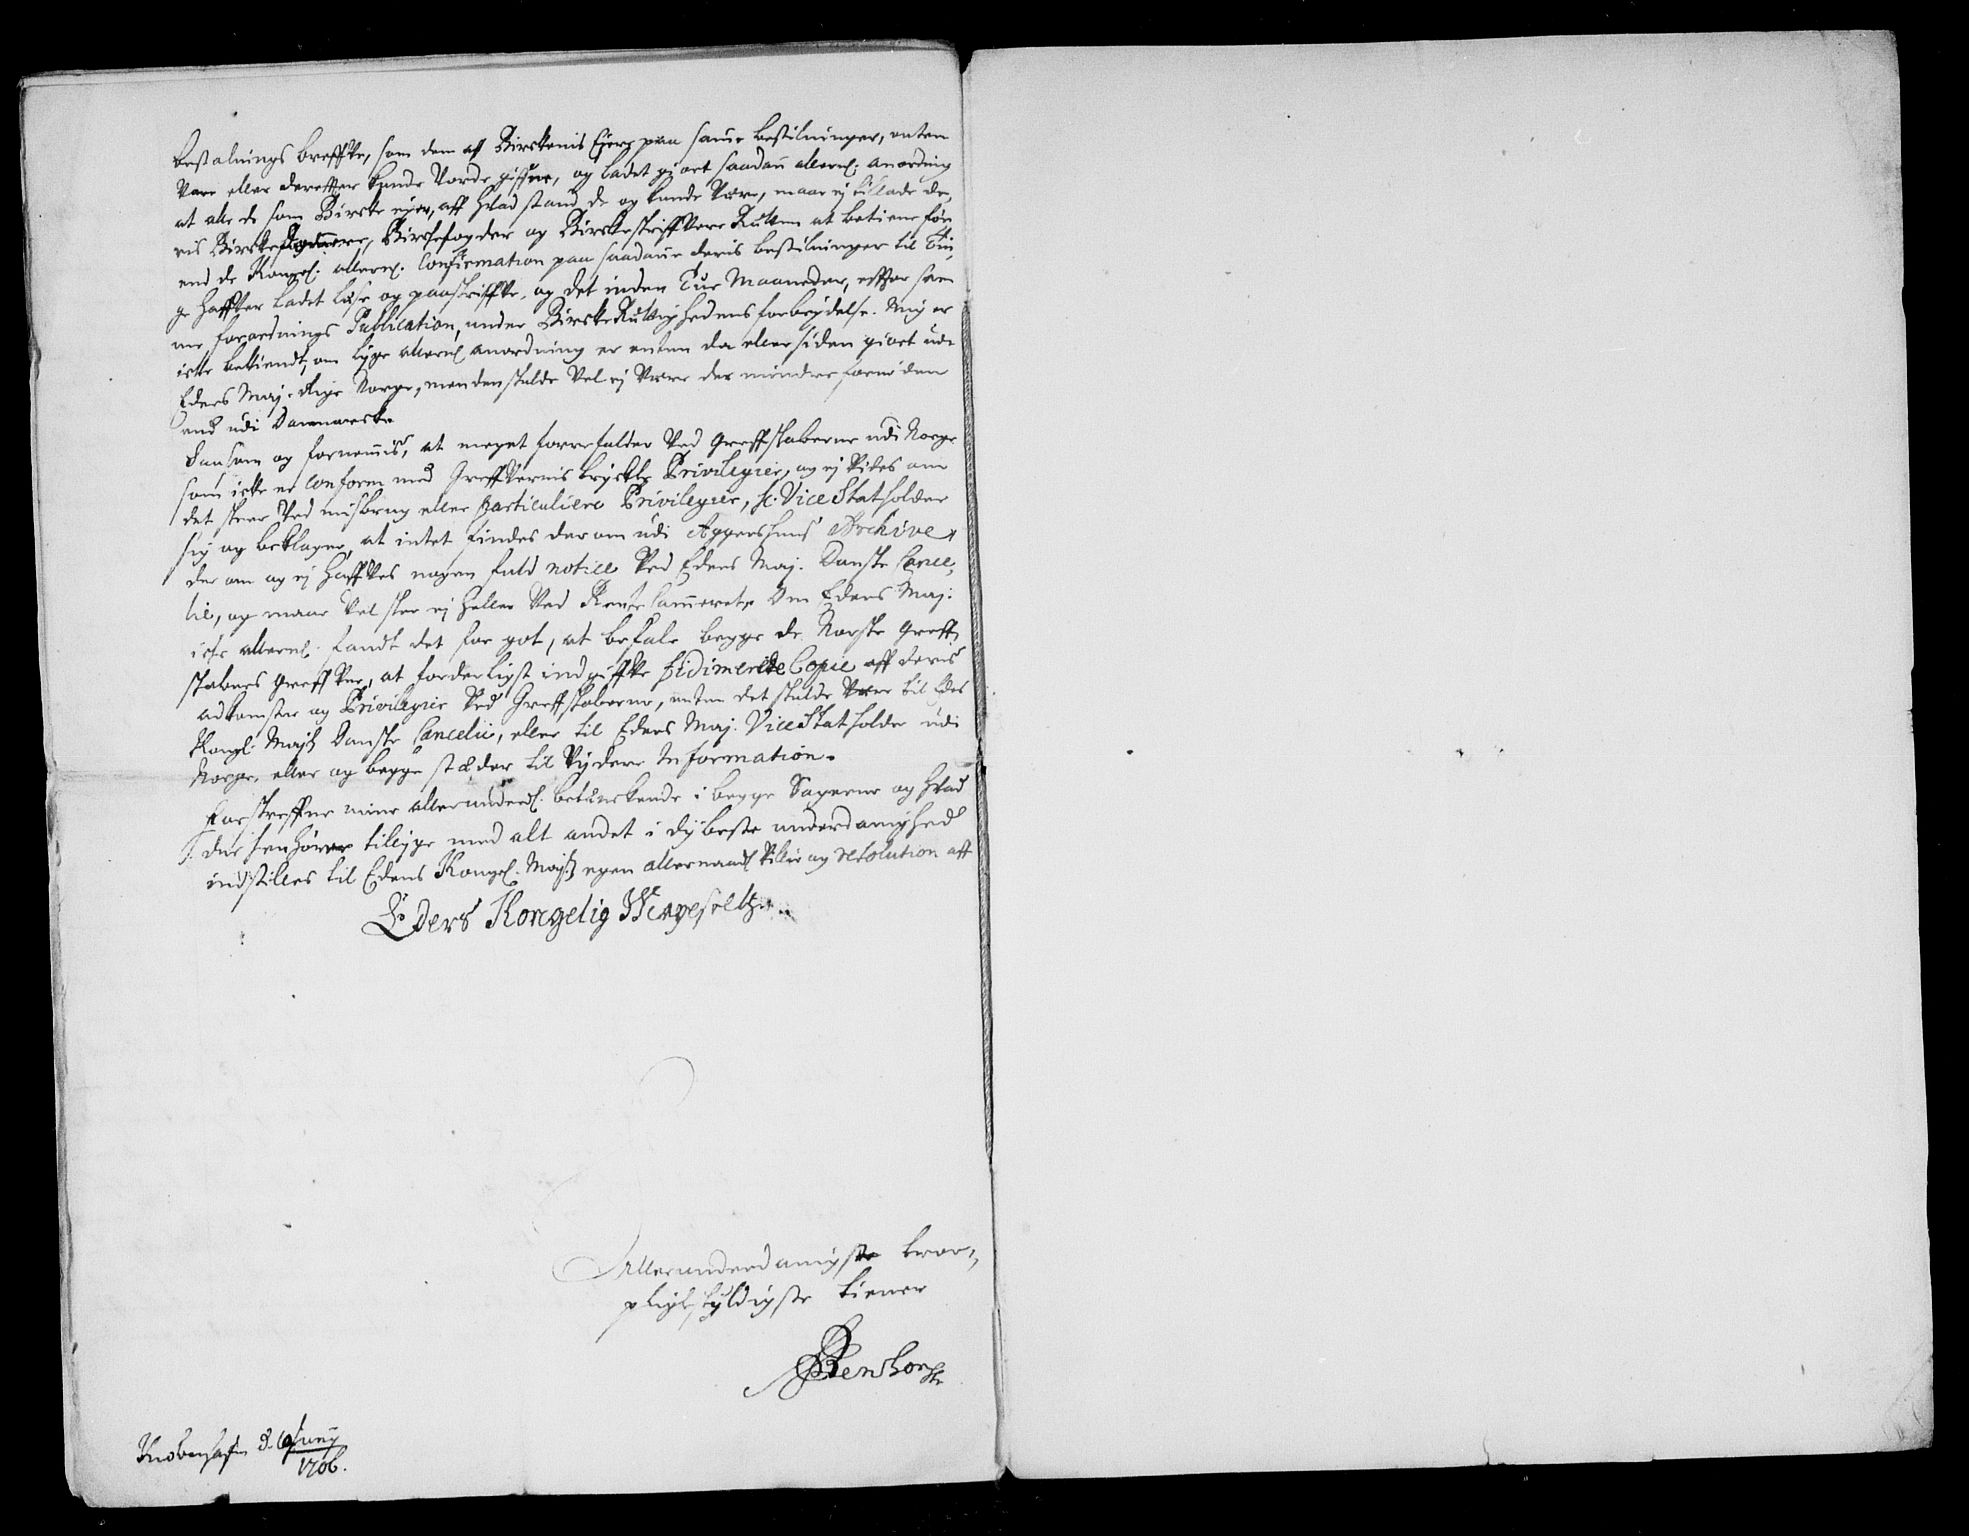 bestalnings breffve, som dem af Birckenis Ejere paa samme bestilninger, enten
vare eller derefter kunde vorde gifvne, og ladet giort saadan allern: anordning
at alle de som Bircke ejer, aff hvad stand de og kunde være, maa ej tillade de,
ris Birckedommere, Birckefogder og Birckeskriffvere Retten at betiene før
end de Kongel: allern: Confirmation paa saadanne deris bestilninger til Tin,
ge haffver ladet læse og paaskriffve, og det inden Tue Maaneder, effter sam
me forordnings Publication, under Bircke Rettighedens forbrydelse. Mig er
icke bekiendt, om lige allern: anordning er enten da eller siden giort udi
Eders Maj: Rige Norge, men den skulde vel ej være der mindre fornøden
end udi Dannemarck
Saasom og fornemmis, at meget forrefalder ved Greffskaberne udi Norge
som icke er conform med Greffvernis tryckte Privilegier, og ej vides om
det skeer ved misbrug eller particuliere Privilegier, hr. Vice Statholder
sig og beklager, at intet findes der om udi Aggershuus Archive,
der om og ej haffves nogen fuld notice ved Eders Maj: Danske Cancel,
lie, og maa vel skee ej heller ved Rente Cammeret, Om Eders Maj:
icke allern: fandt det for got, at befale begge de Norske Greff,
skabers Greffver, at forderligst indgiffve vidimerede Copie aff deris
adkomster og Privilegier ved Greffskaberne, enten det skulde være til Eders
Kongl: Majts Danske Cancelie, eller til Eders Maj: Vice Statholder udi
Norge, eller og begge stæder til videre Information.
Forskreffne mine allerunderd: betenckende i begge Sagerne og hvad
der henhører tillige med alt andet i dybeste underdanighed
indstilles til Eders Kongel: Majts egen allernaadl villie og resolution aff
Eders Kongelig Mayestetz..
Allerunderdanigste troe,
pligtskyldigste tiener
Kiøbenhafn d. Junij
1706.